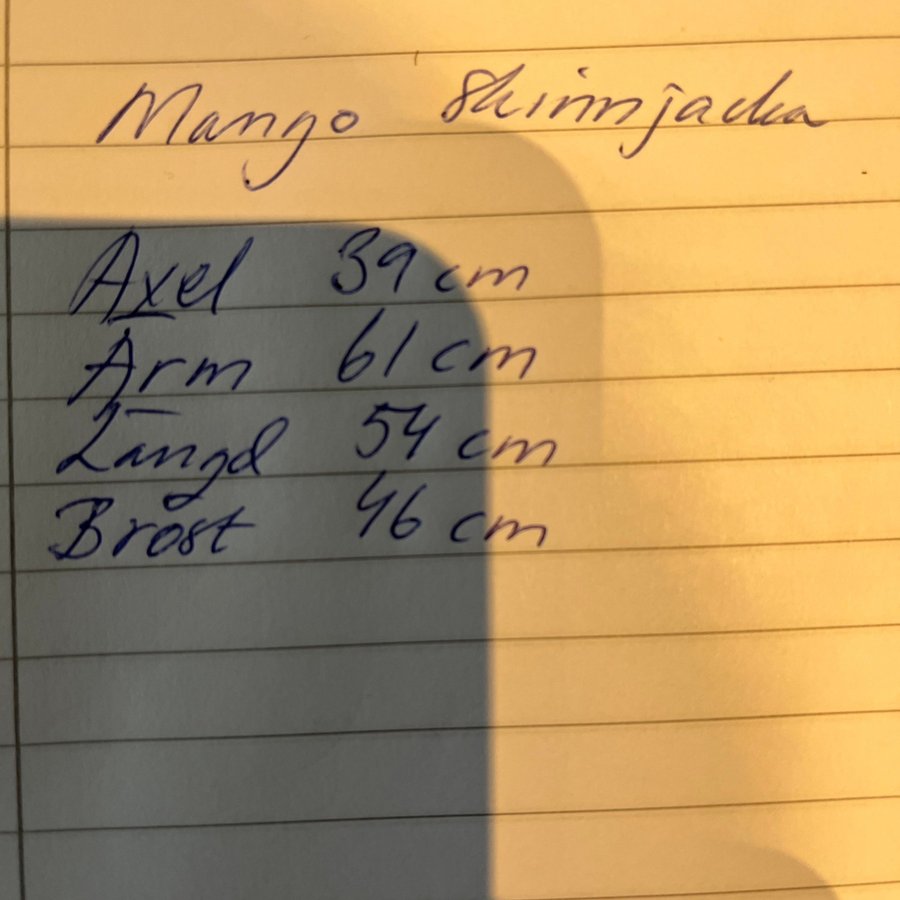 Mango Skinnjacka
Axel 39 cm
Arm 61 cm
Längd 54 cm
Bröst 46 cm